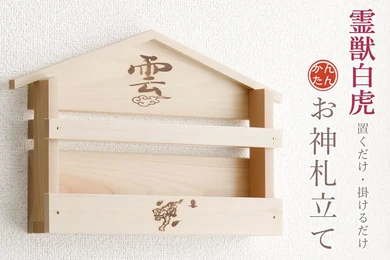 霊獣白虎
置くだけ・掛けるだけ
かんたん
お神札立て
雲